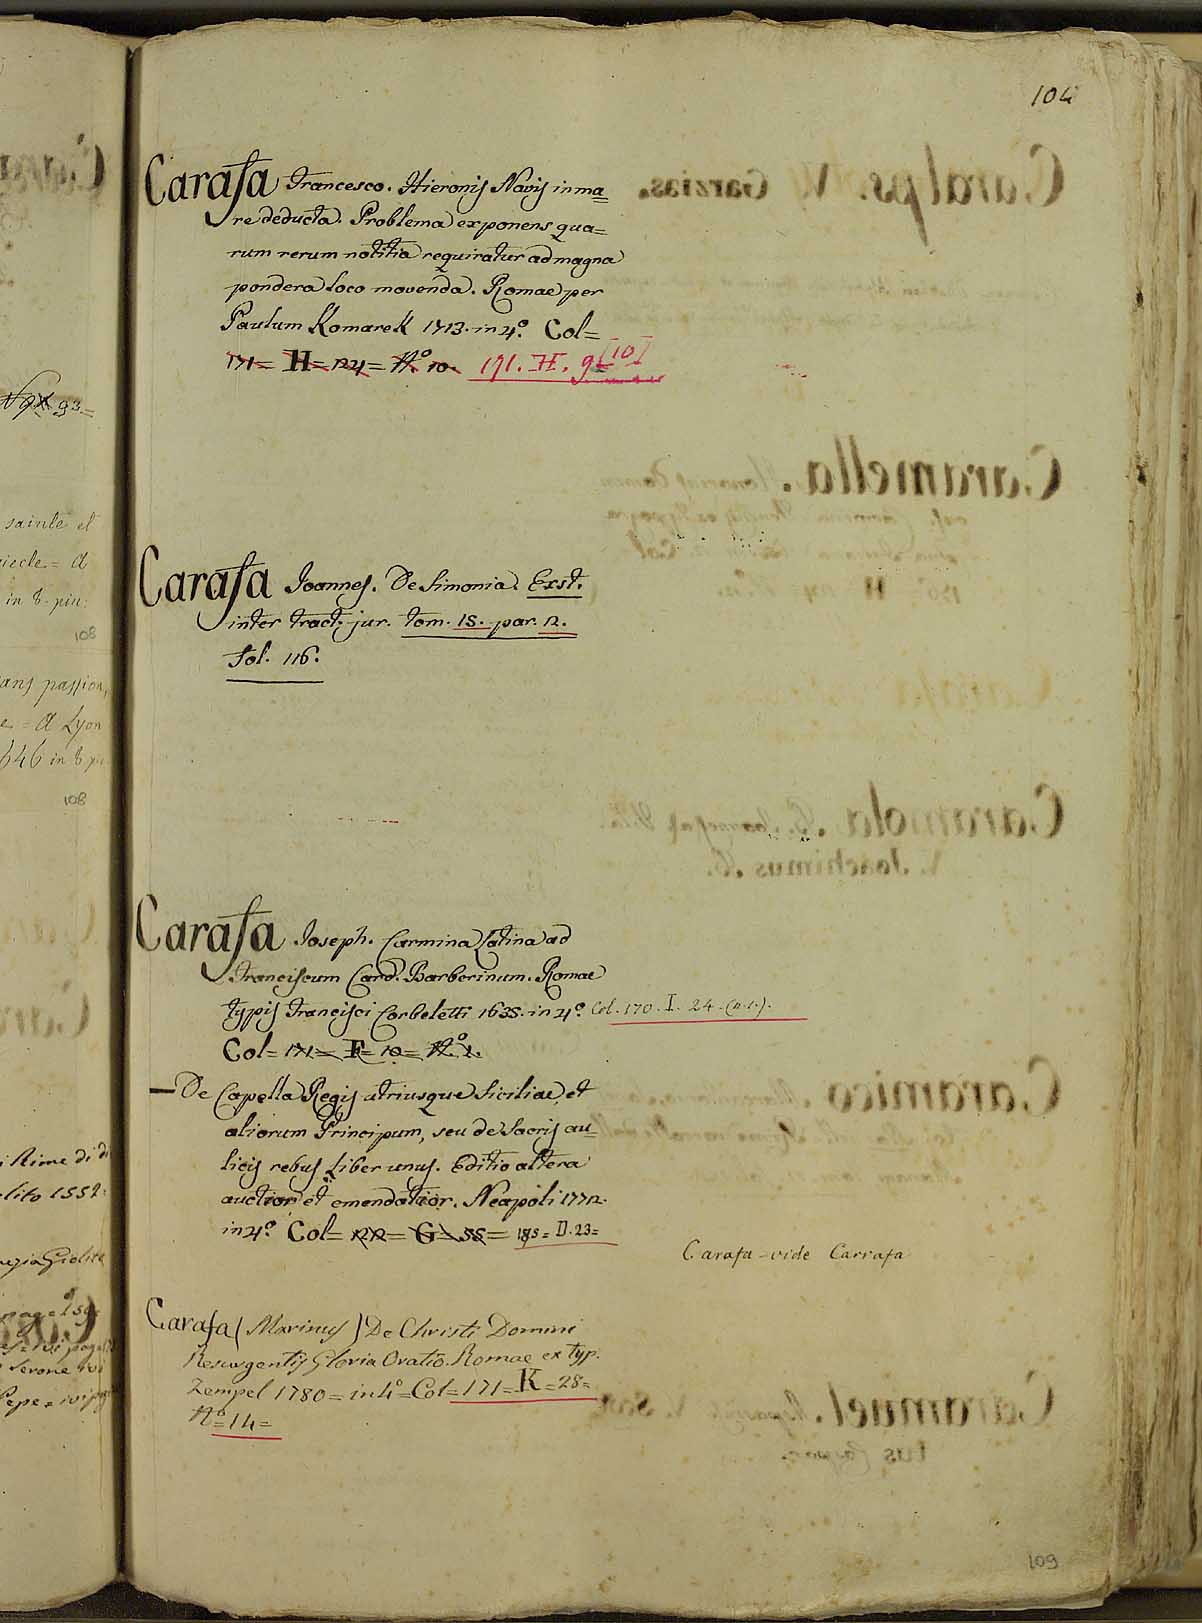 104
Carafa Francesco. Hieronis Navis in ma=
re deducta. Problema exponens qua=
rum rerum notitia requiratur ad magna
pondera loco movenda. Romae per
Paulum Komarek 1713. in 4º. Col=
171= H= 124= Nº 10. 171. H. 9 [10]
Carafa Joannes. De Simonia. Exst.
inter tract. jur. tom. 15. par. 2.
fol. 116.
Carafa Joseph. Carmina Latina ad
Franciscum Card. Barberinum. Romae
typis Francisci Corbeletti 1635. in 4º. Col. 170. I. 24. (n.1.).
Col= 171= F= 10= Nº. 1.
— De Capella Regis utriusque Siciliae, et
aliorum Principum, seu de Sacris au=
licis rebus Liber unus. Editio altera
auctior et emendatior. Neapoli 1772.
in 4º. Col= 122= G= 55= 185= D. 23=
Carafa - vide Carrafa
Carafa (Marinus) De Christi Domini
Resurgentis Gloria Oratio. Romae ex typ.
Zempel 1780= in 4º= Col= 171= K= 28=
Nº= 14=
109
93=
sainte et
siecle= A
in 8. piu:
108
sans passion,
e= A Lyon
646 in 8. piu
108
Rime di d
olito 1552.
Giolito